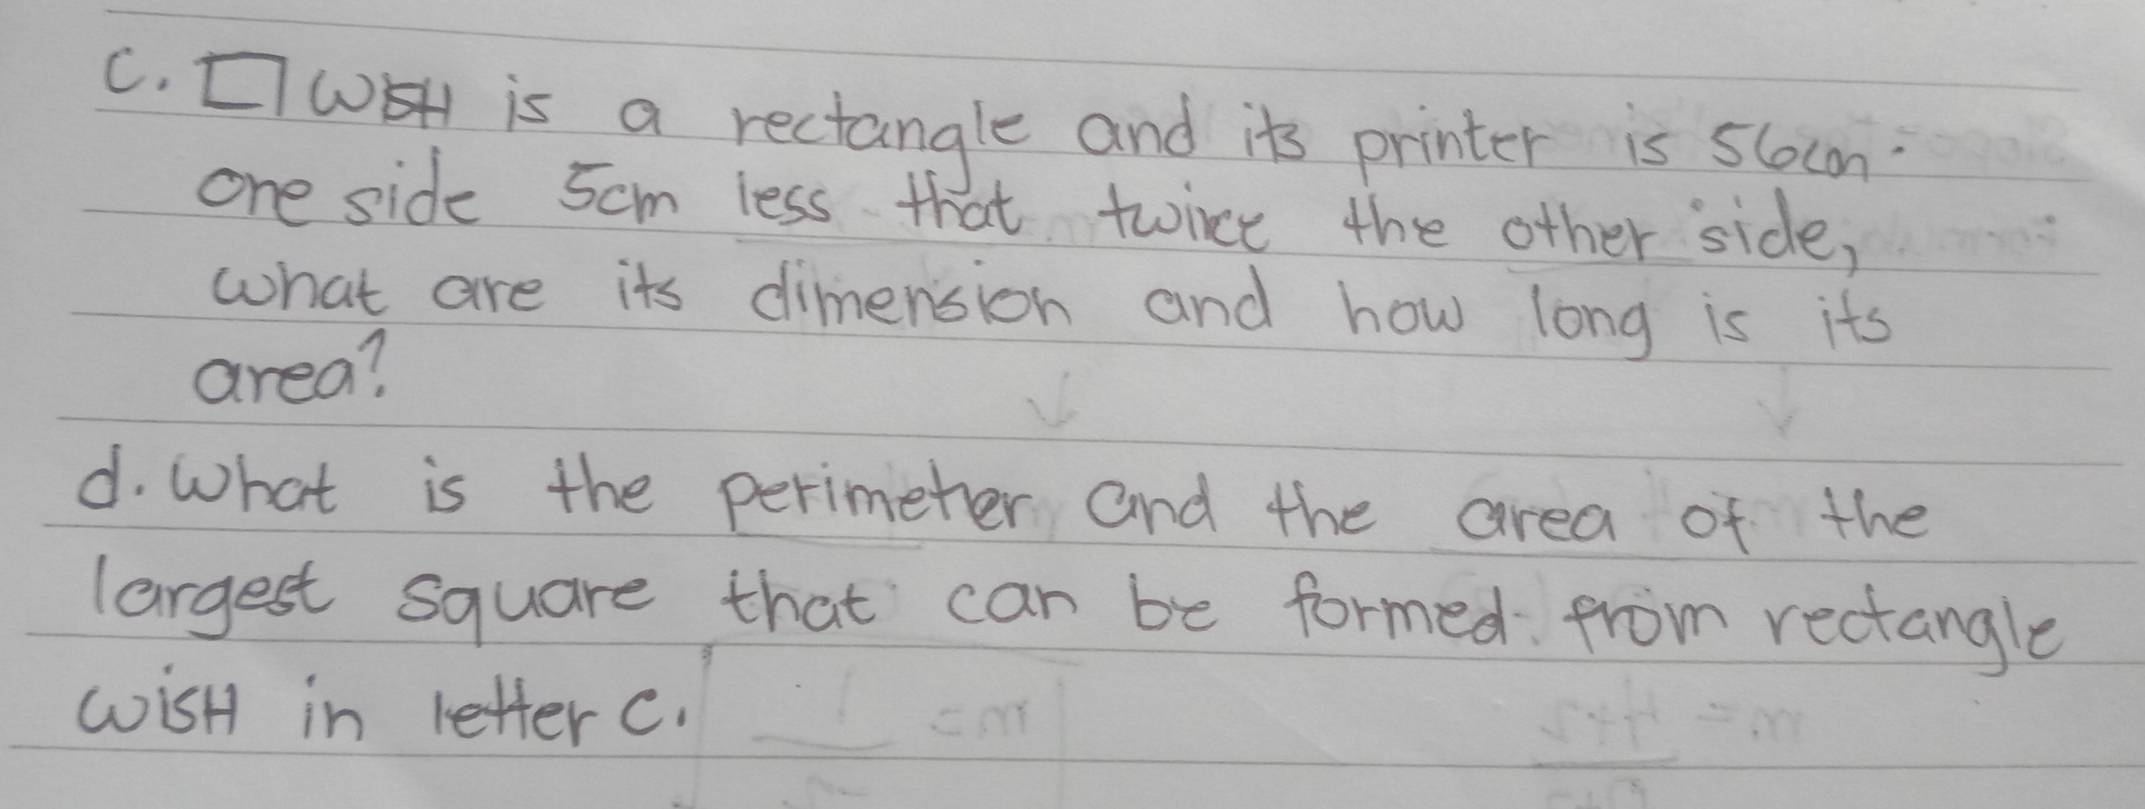 C. □ WISH is a rectangle and its printer is 56cm.
one side 5cm less that twice the other side,
what are its dimension and how long is its
area?
d. What is the perimeter and the area of the
largest square that can be formed from rectangle
WISH in letter C.